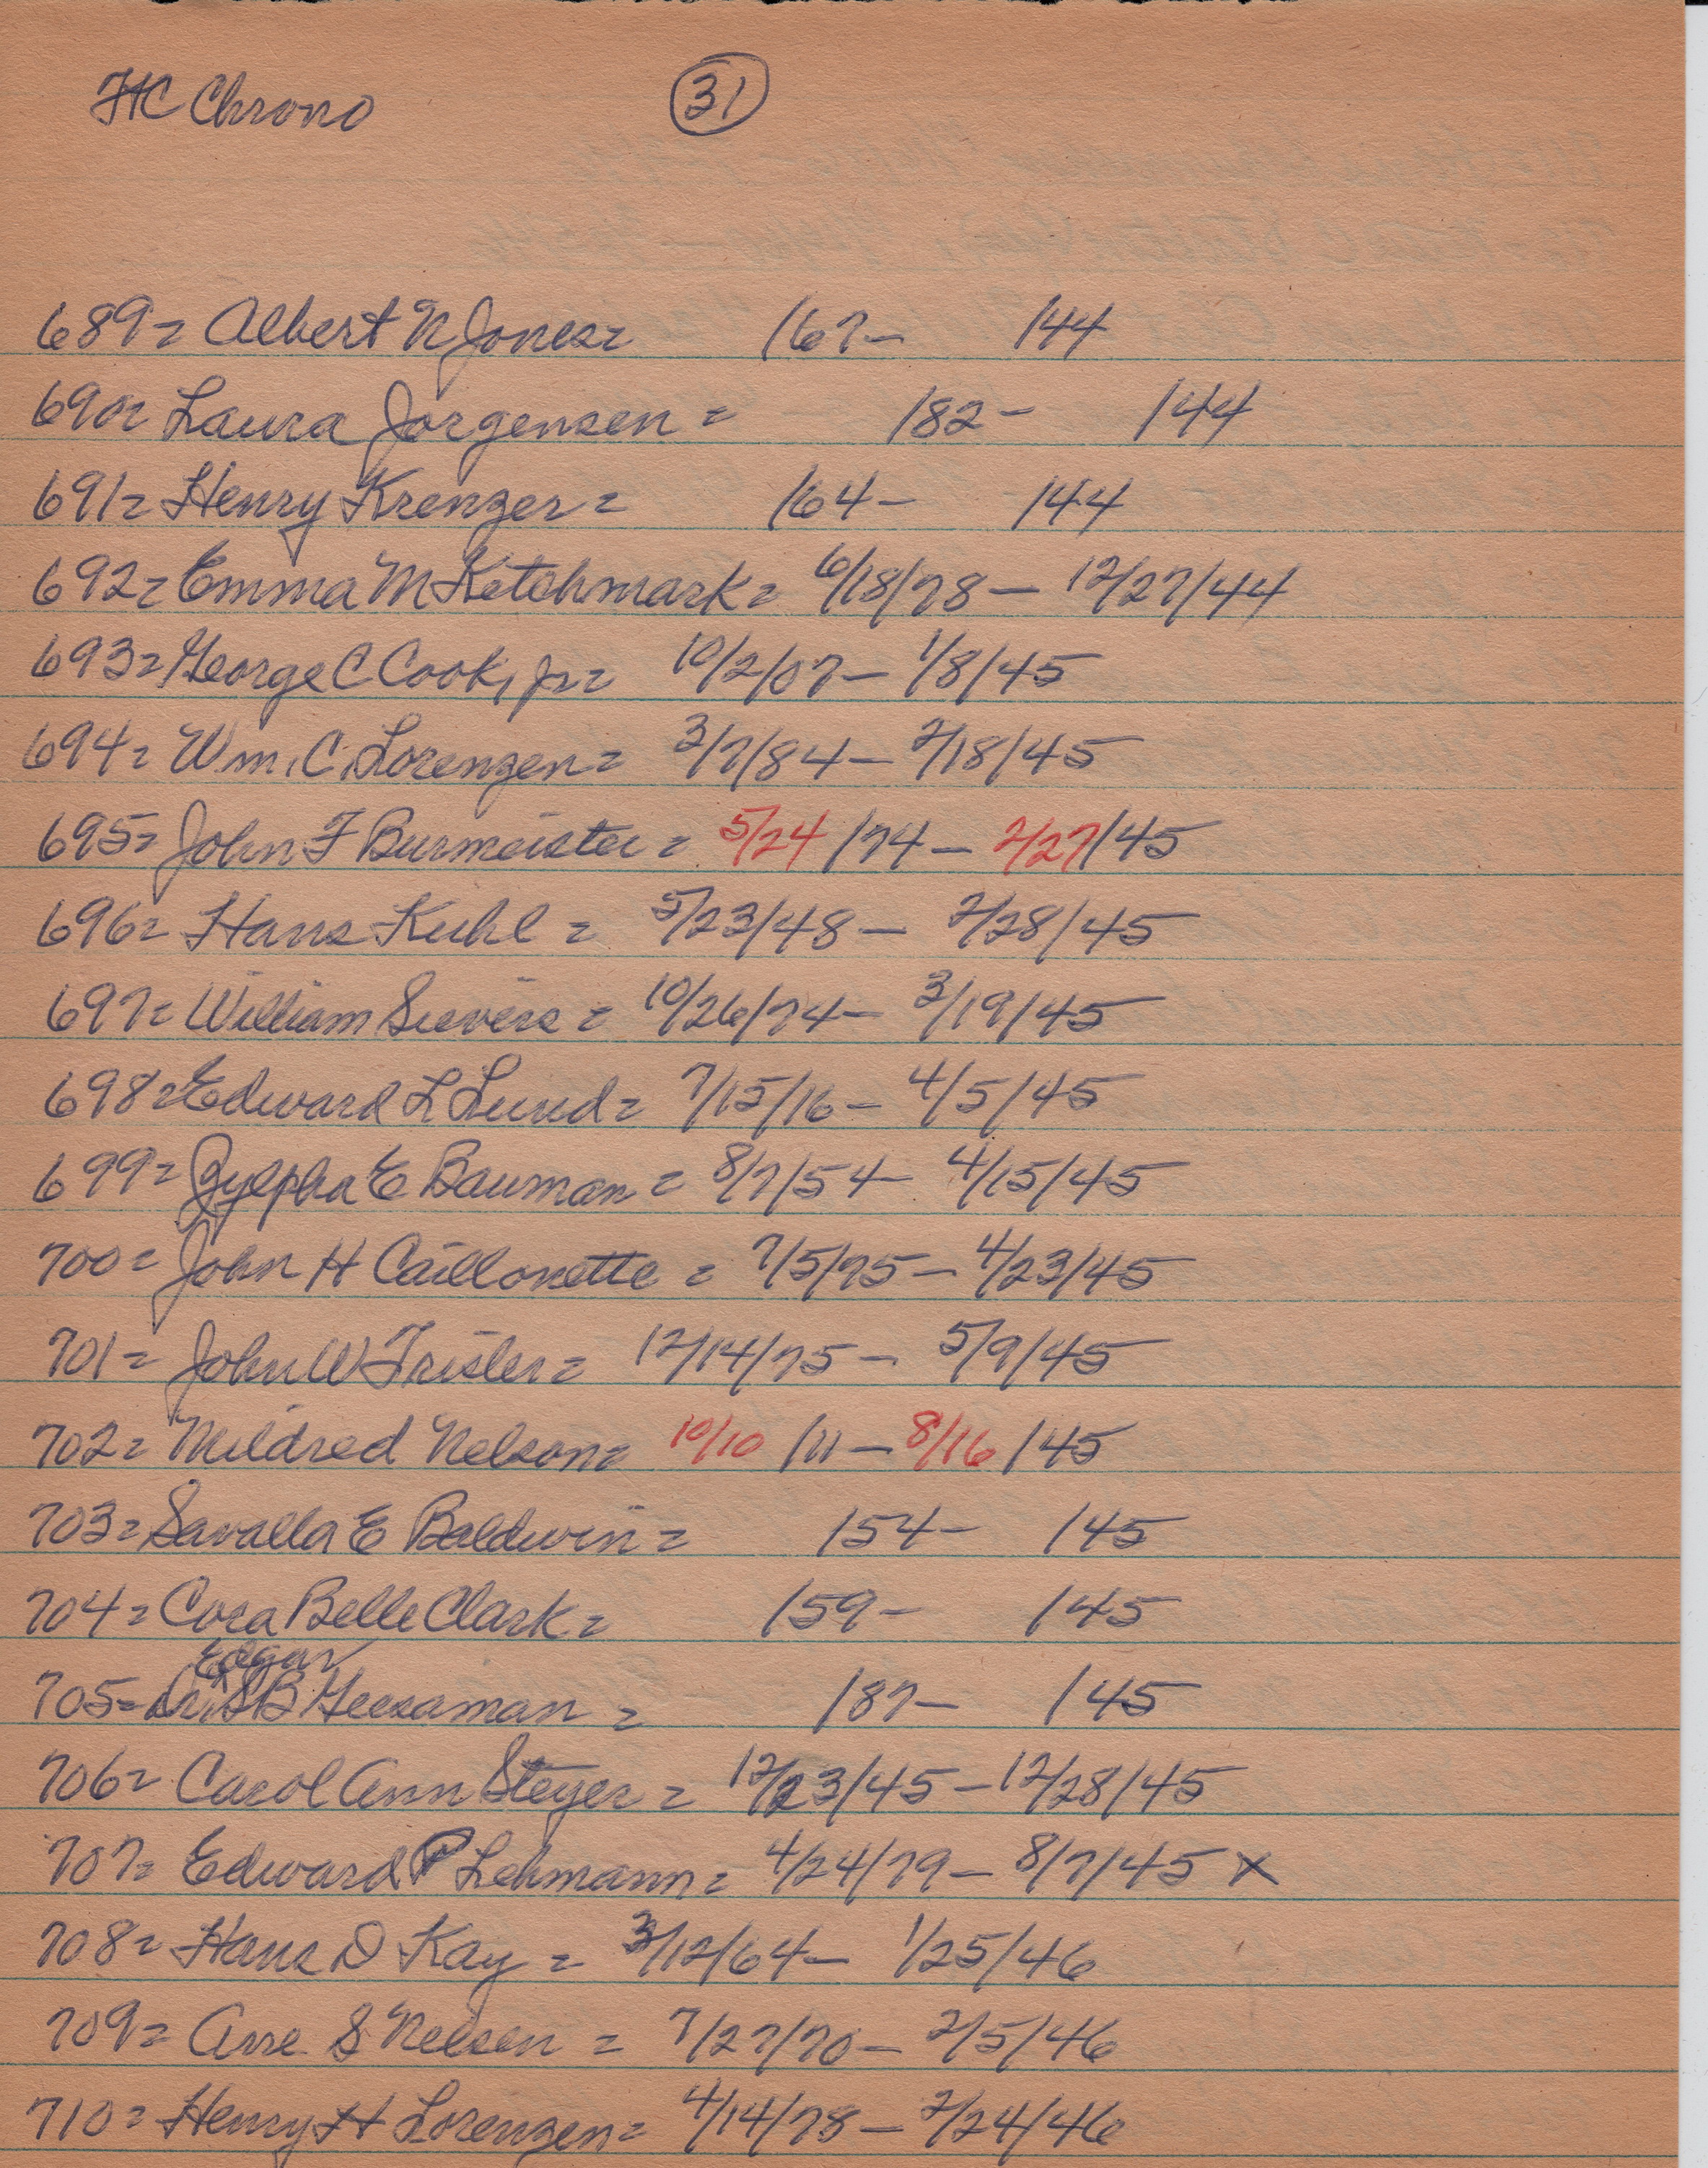 FHC Chrono 31
689= Albert N Jones= /67- /44
690= Laura Jorgensen = /82- /44
691= Henry Krenzer = /64- /44
692= Emma M Ketchmark= 6/18/78 - 12/27/44
693= George C Cook, Jr= 10/2/07- 1/8/45
694= Wm. C. Lorenzen= 3/7/84- 2/18/45
695= John F Burmeister = 5/24/74- 2/27/45
696= Hans Kuhl = 5/23/48- 2/28/45
697= William Sievers = 10/26/74- 3/19/45
698= Edward L Lund= 7/15/16- 4/5/45
699= Zylpha E Bauman = 8/7/54- 4/15/45
700= John H Caillouette = 7/5/75- 4/23/45
701= John W Trisler= 12/14/75- 5/9/45
702= Mildred Nelson= 10/10/11- 8/16/45
703= Savalla E Baldwin= /54- /45
704= Cora Belle Clark= /59- /45
Edgar
705= Dr. ^ B Geesaman = /87- /45
706= Carol Ann Steyer = 12/23/45- 12/28/45
707= Edward P Lehmann= 4/24/79- 8/7/45 X
708= Hans D Kay = 3/12/64- 1/25/46
709= Arre S Nielsen = 7/27/70- 2/5/46
710= Henry H Lorenzen= 4/14/78- 2/24/46